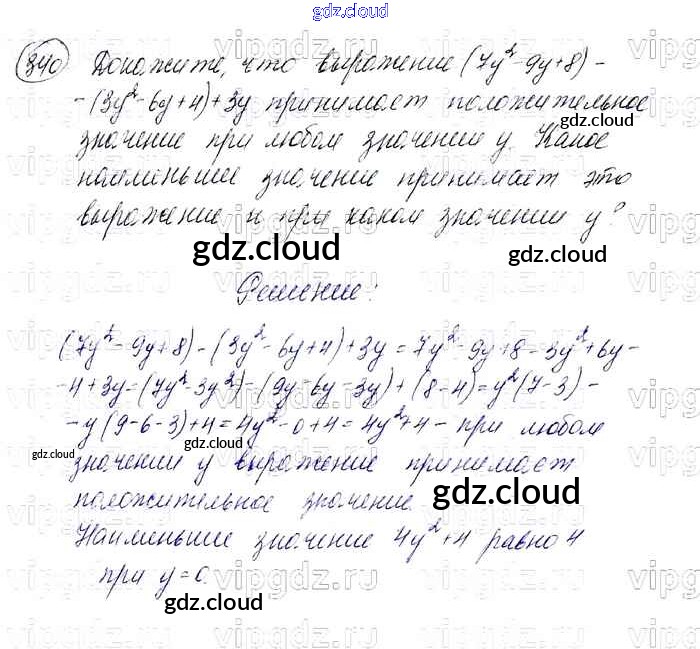 gdz.cloud
340 Докажите, что выражение (7y² - 9y + 8) -
- (3y² - 6y + 4) + 3y принимает положительное
gdz.cloud
значение при любом значении y. Какое
наименьшее значение принимает это
выражение и при каком значении y?
gdz.cloud gdz.cloud
Решение:
(7y² - 9y + 8) - (3y² - 6y + 4) + 3y = 7y² - 9y + 8 - 3y² + 6y -
- 4 + 3y = (7y² - 3y²) - (9y - 6y - 3y) + (8 - 4) = y² (7 - 3) -
- y (9 - 6 - 3) + 4 = 4y² - 0 + 4 = 4y² + 4 - при любом
gdz.cloud gdz.cloud
значении y выражение принимает
положительное значение.
gdz.cloud
Наименьшее значение 4y² + 4 равно 4
при y = 0.
gdz.cloud
vipgdz.ru